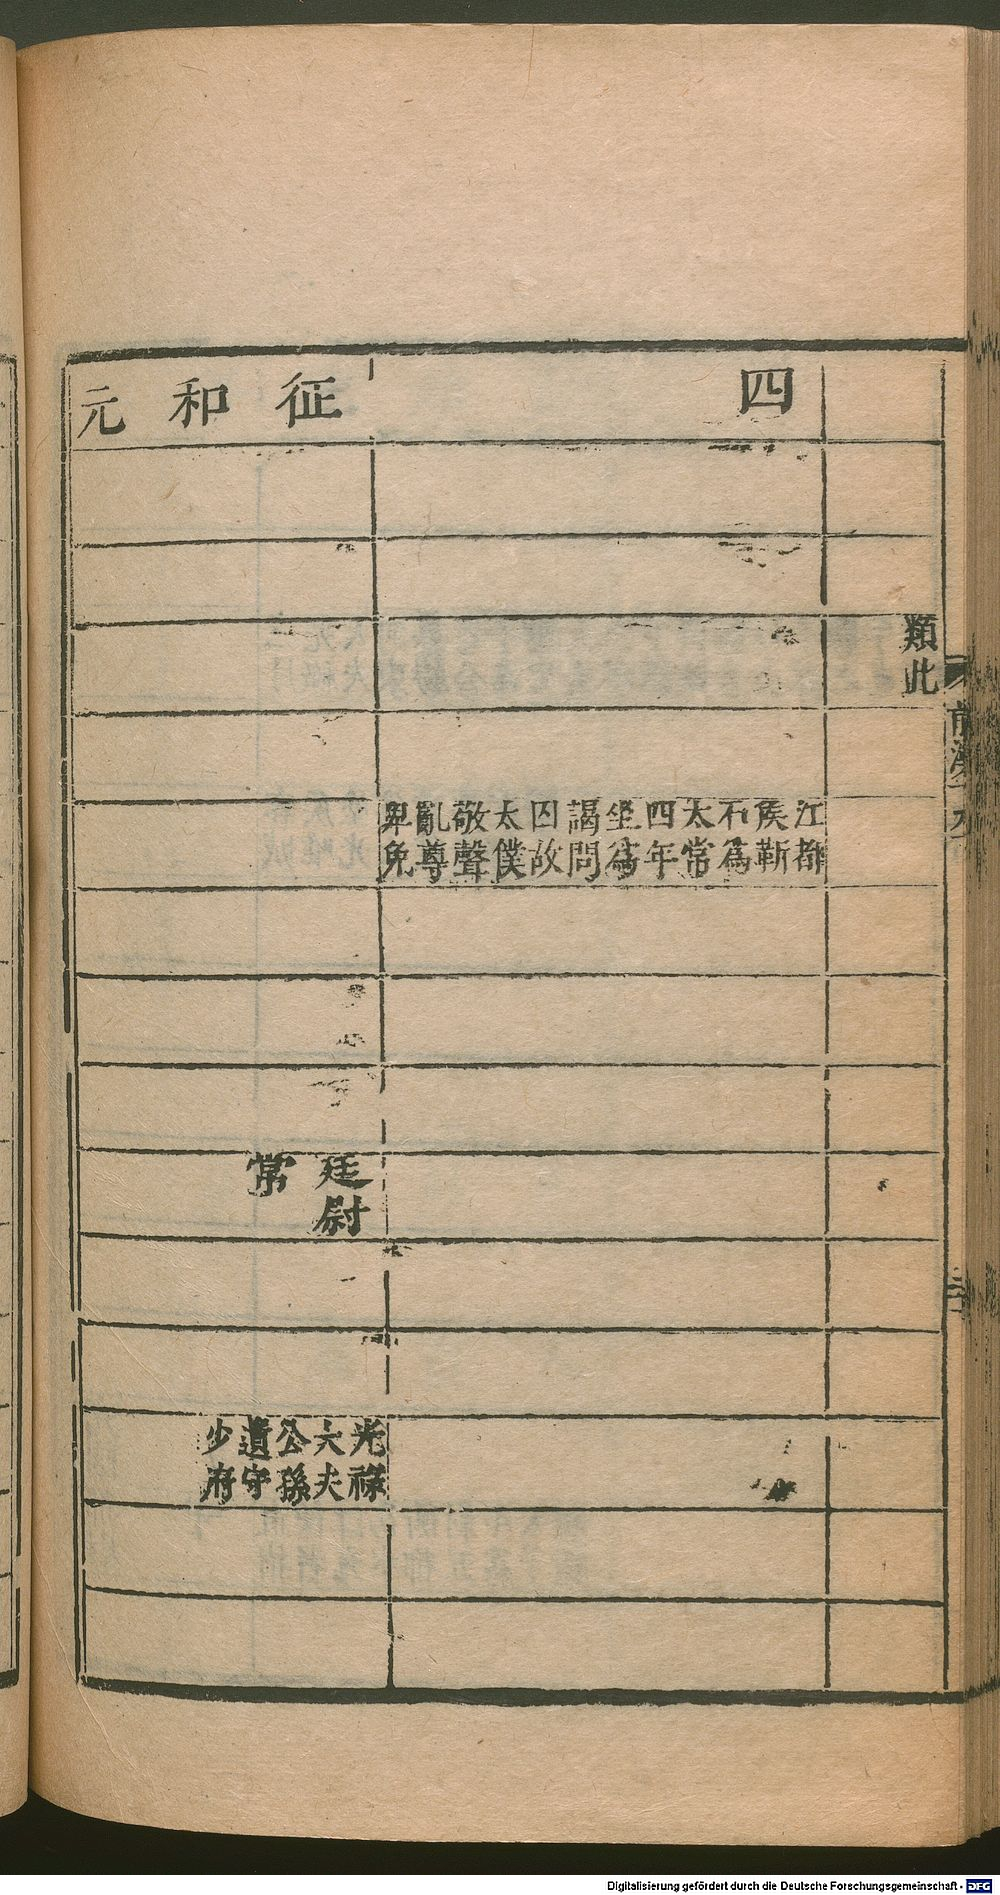 類此
前漢
四
江都
侯靳
石爲
太常
四年
坐爲
謁問
囚故
太僕
敬聲
亂尊
卑免
征和元
廷尉
常
光祿
大夫
公孫
遺守
少府
Digitalisierung gefördert durch die Deutsche Forschungsgemeinschaft - DFG